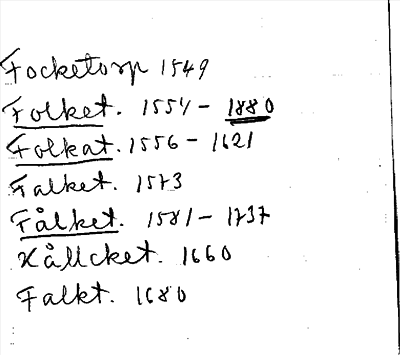 Focketorp 1549
Folket. 1554 - 1880
Folkat. 1556 - 1621
Falket. 1573
Fålket. 1581 - 1737
Kållcket. 1660
Falkt. 1680